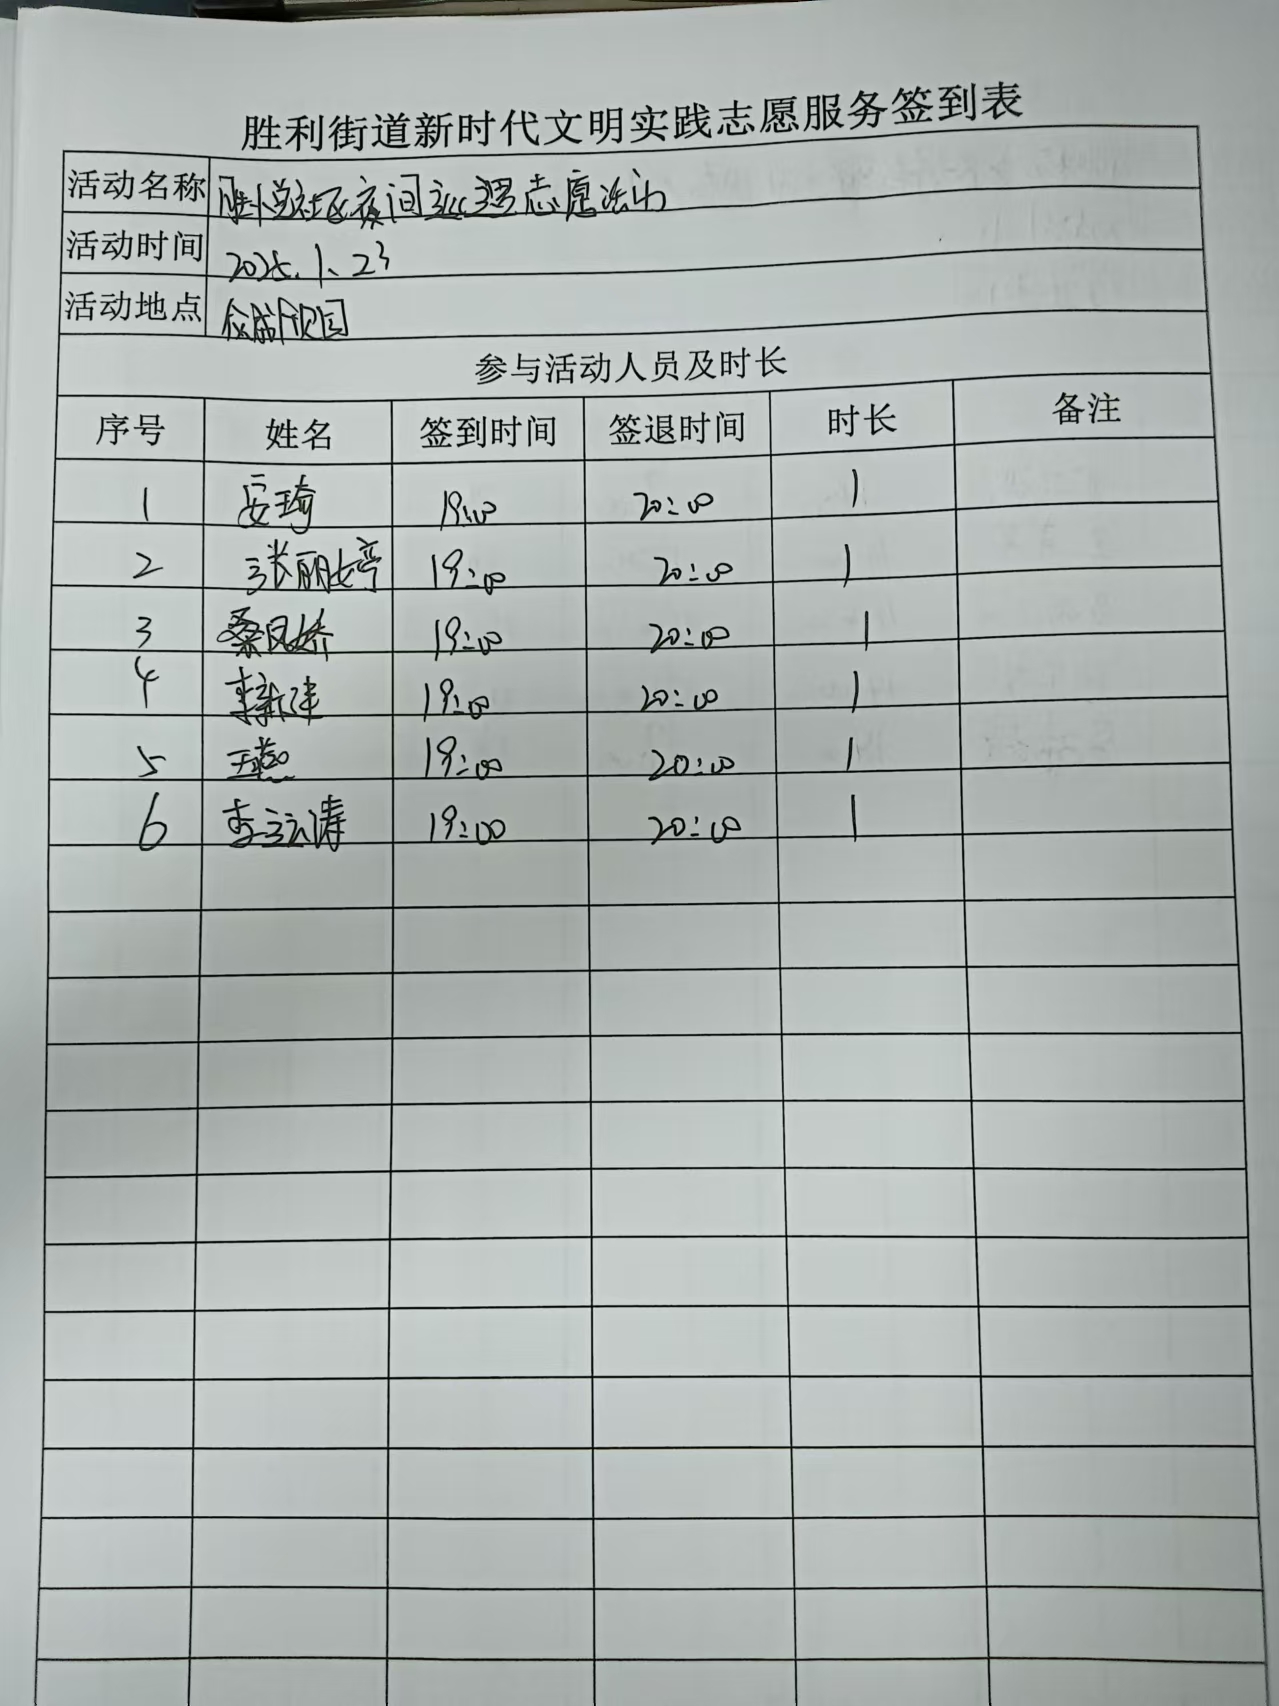 胜利街道新时代文明实践志愿服务签到表
活动名称 社区夜间巡逻志愿活动
活动时间 2025.1.23
活动地点
参与活动人员及时长
序号 姓名 签到时间 签退时间 时长 备注
1 安琦 19:00 20:00 1
2 张丽婷 19:00 20:00 1
3 桑凤娇 19:00 20:00 1
4 李新建 19:00 20:00 1
5 王燕 19:00 20:00 1
6 李立涛 19:00 20:00 1